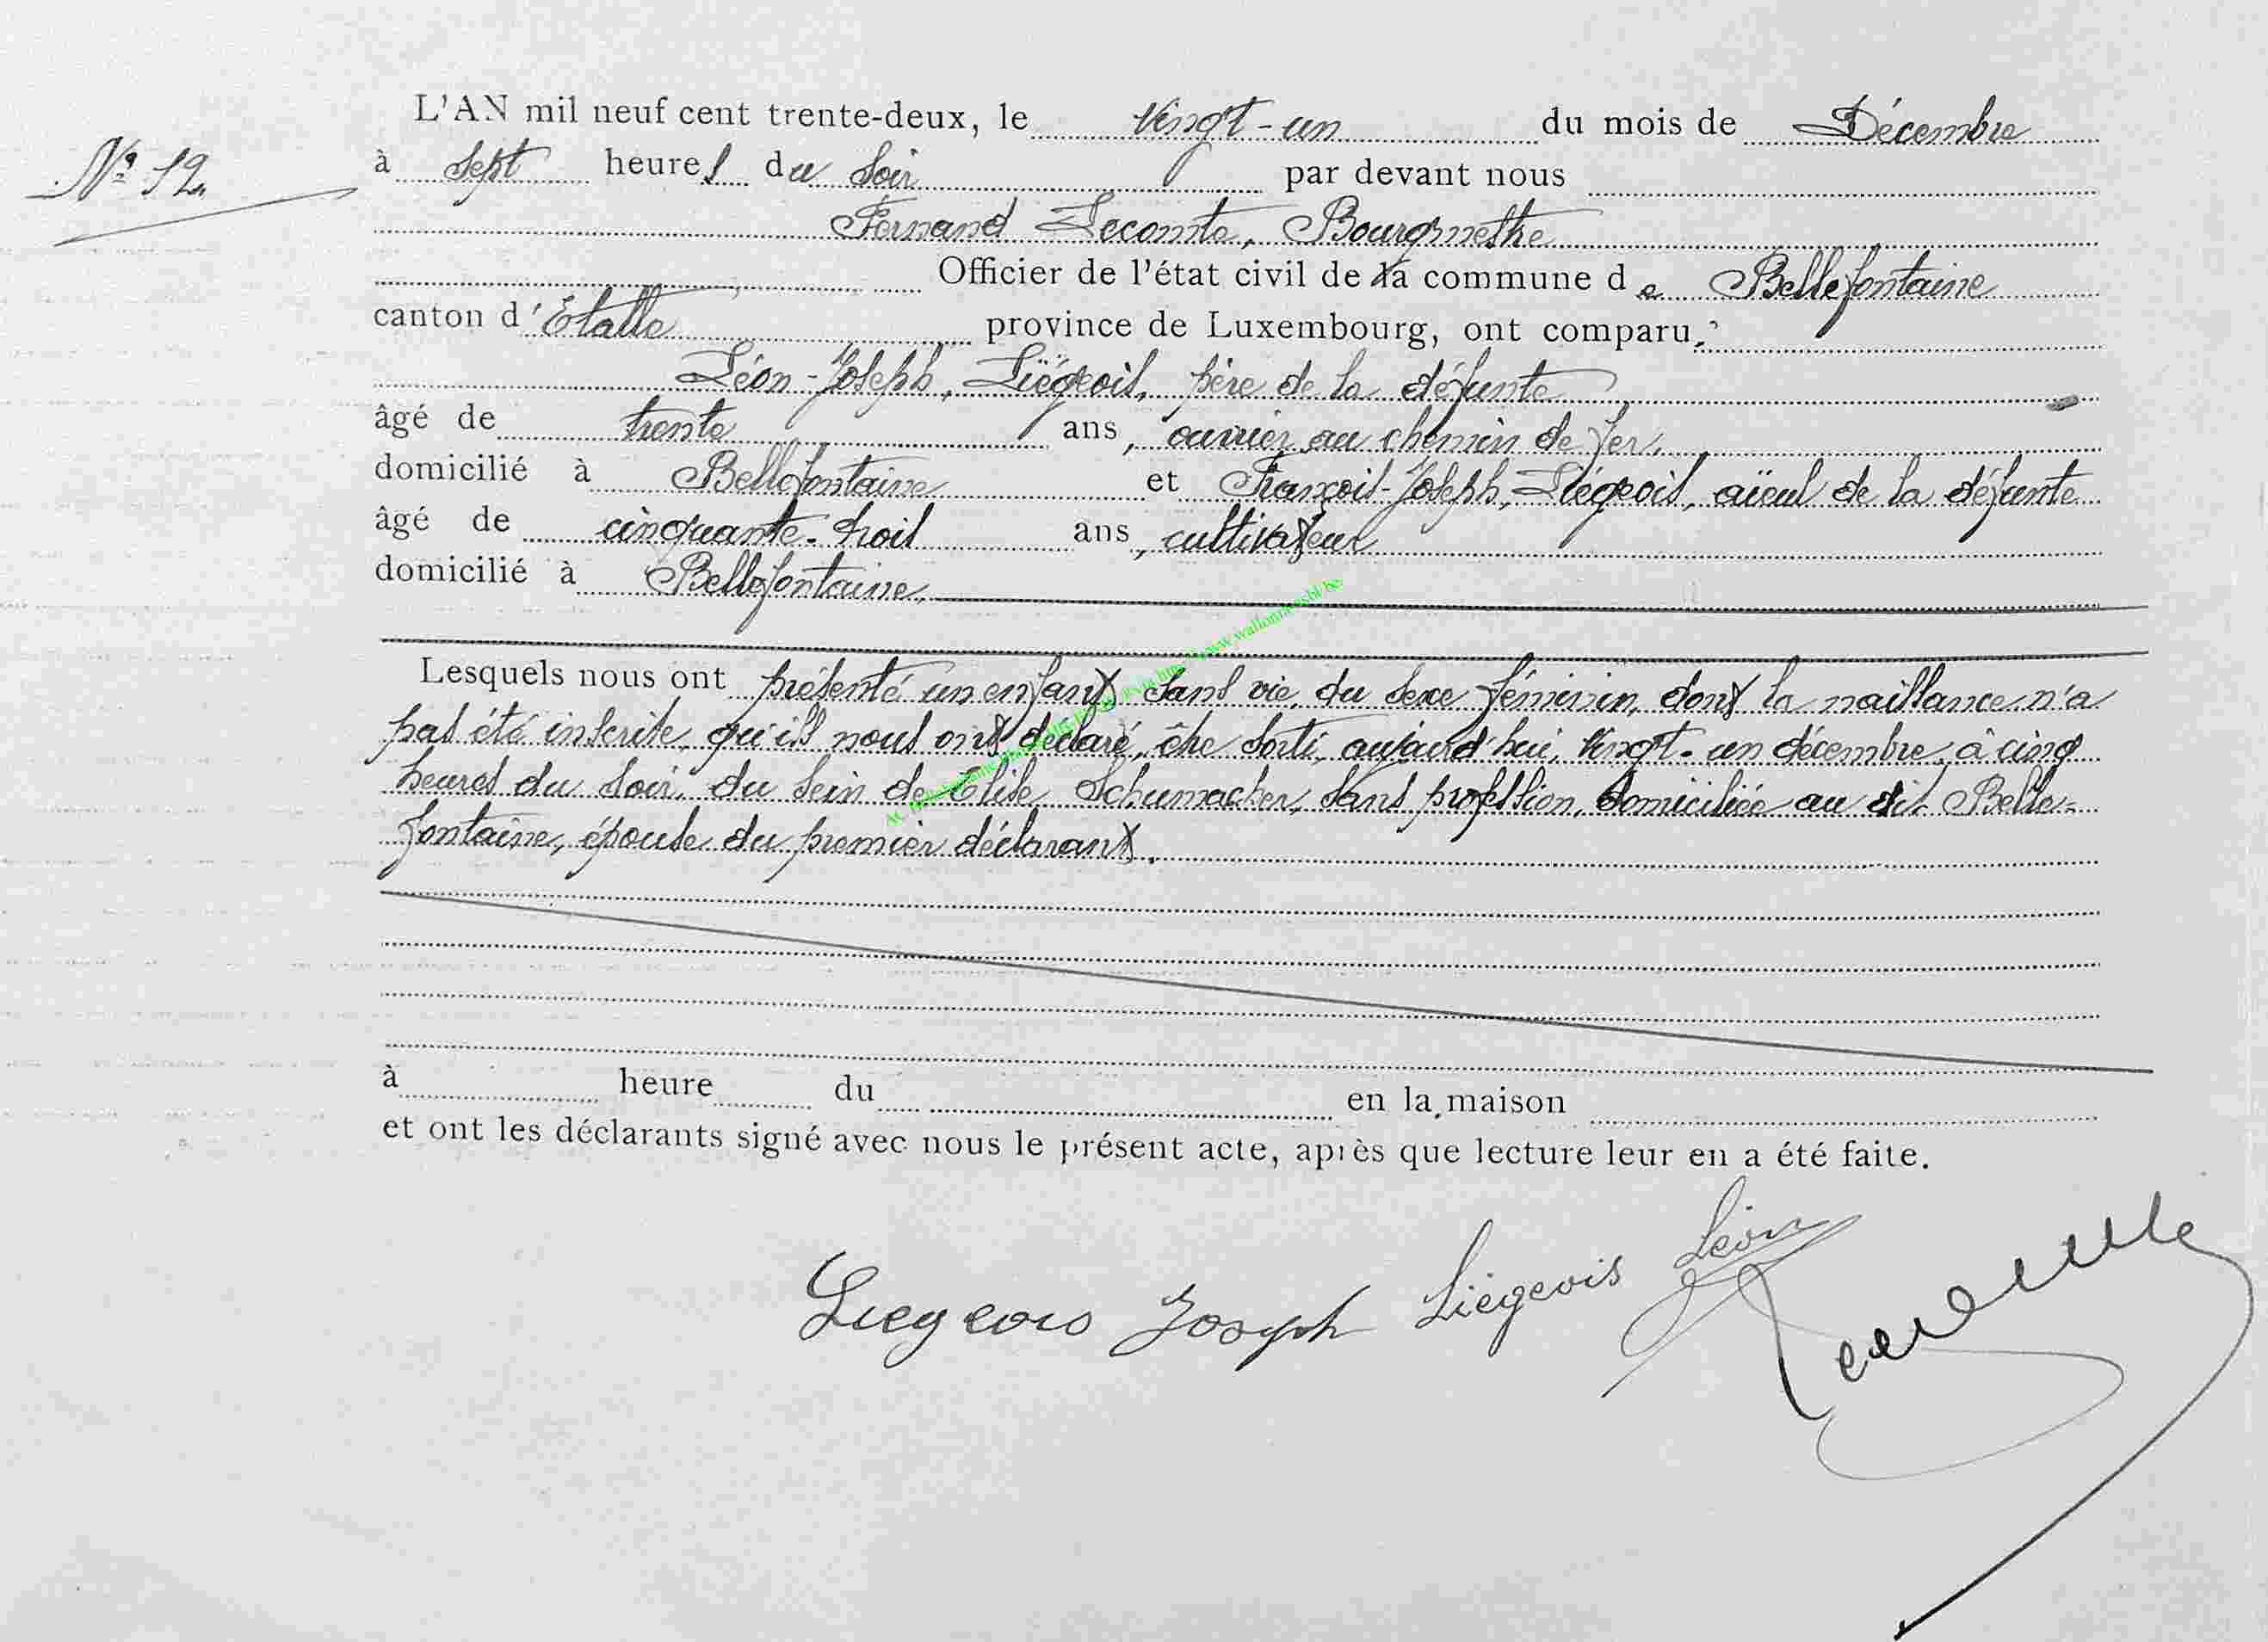 L'AN mil neuf cent trente-deux, le vingt-un du mois de Décembre
Nº 12
à sept heures du soir par devant nous
Fernand Lecomte, Bourgmestre
Officier de l'état civil de la commune de Bellefontaine
canton d'Etalle province de Luxembourg, ont comparu :
Léon-Joseph, Liégeois, père de la défunte
âgé de trente ans, ouvrier au chemin de fer,
domicilié à Bellefontaine et François-Joseph, Liégeois, aïeul de la défunte
âgé de cinquante-trois ans, cultivateur
domicilié à Bellefontaine,
Lesquels nous ont présenté un enfant sans vie, du sexe féminin, dont la naissance n'a
pas été inscrite, qu'ils nous ont déclaré, être sorti, aujourd'hui, vingt-un décembre, à cinq
heures du soir, du sein de Elise, Schumacher, sans profession, domiciliée au dit Belle-
fontaine, épouse du premier déclarant.
à heure du en la maison
et ont les déclarants signé avec nous le présent acte, après que lecture leur en a été faite.
Liegeois Joseph Liégeois Léon